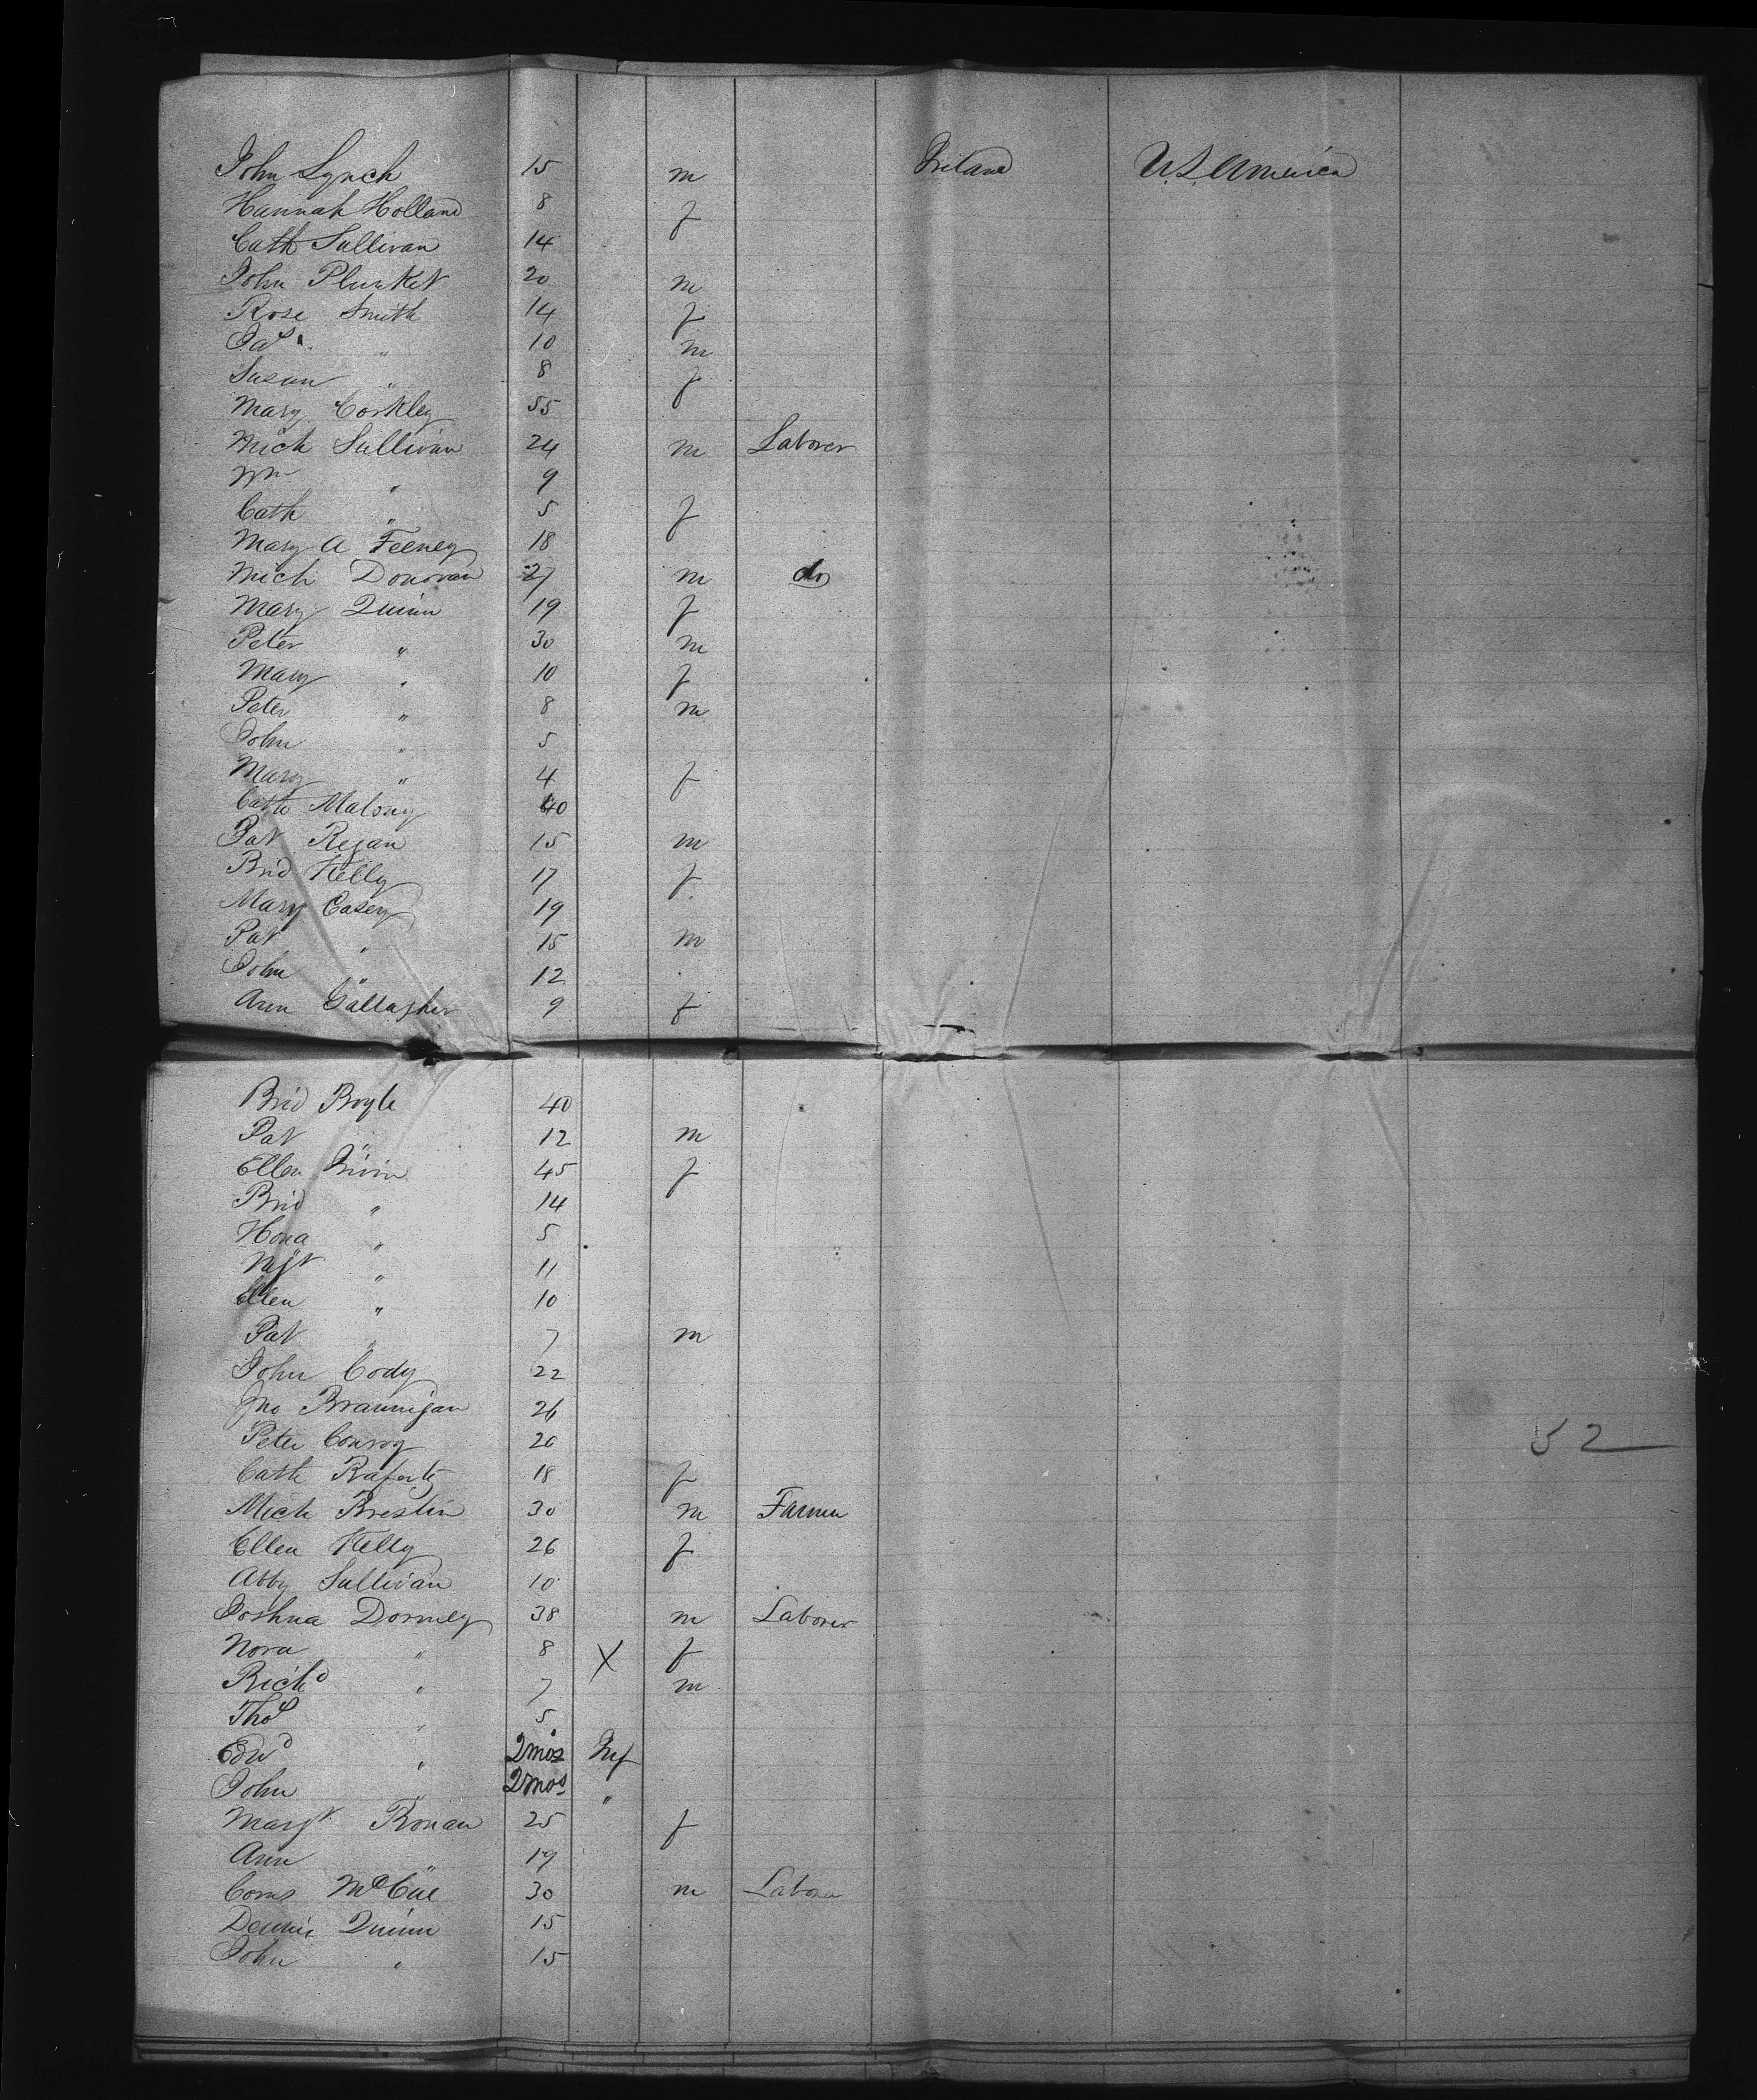 John Lynch 15 m Ireland U.S. America
Hannah Holland 8 f
Cath Sullivan 14
John Plunket 20 m
Rose Smith 14 f
Pat " 10 m
Susan " 8 f
Mary Corkley 55
Mich Sullivan 24 m Laborer
Wm " 9
Cath " 5 f
Mary A Feeney 18
Mich Donovan 27 m do
Mary Quinn 19 f
Peter " 30 m
Mary " 10 f
Peter " 8 m
John " 5
Mary " 4 f
Cath Malony 40
Pat Regan 15 m
Brid Kelly 17 f
Mary Casey 19
Pat " 15 m
John " 12
Ann Gallagher 9 f
Brid Boyle 40
Pat " 12 m
Ellen 45 f
Brid " 14
Hona " 5
Mgt " 11
Ellen " 10
Pat " 7 m
John Cody 22
Jno Brannigan 26
Peter Conroy 20
Cath Raferty 18 f
Mich Breslin 30 m Farmer
Ellen Kelly 26 f
Abby Sullivan 10
Joshua Dormey 38 m Laborer
Nora " 8 X f
Richd " 7 m
Thos " 5
Edwd " 2mos Inf
John " 2mos "
Margt Ronan 25 f
Ann " 19
Corns McCue 30 m Laborer
Dennis Quinn 15
John " 15
52